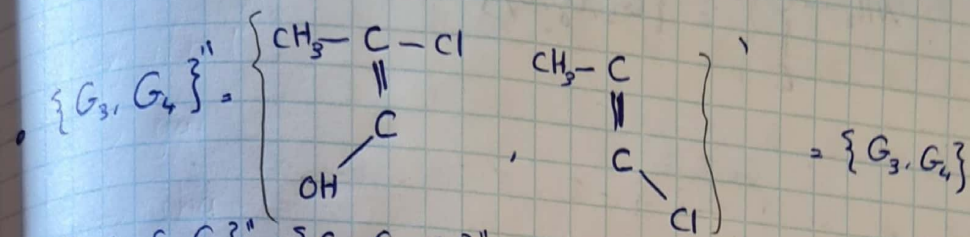 • {G₃, G₄}" = { CH₃ – C – Cl
||
C
OH
,
CH₃ – C
||
C
Cl }' = {G₃, G₄}